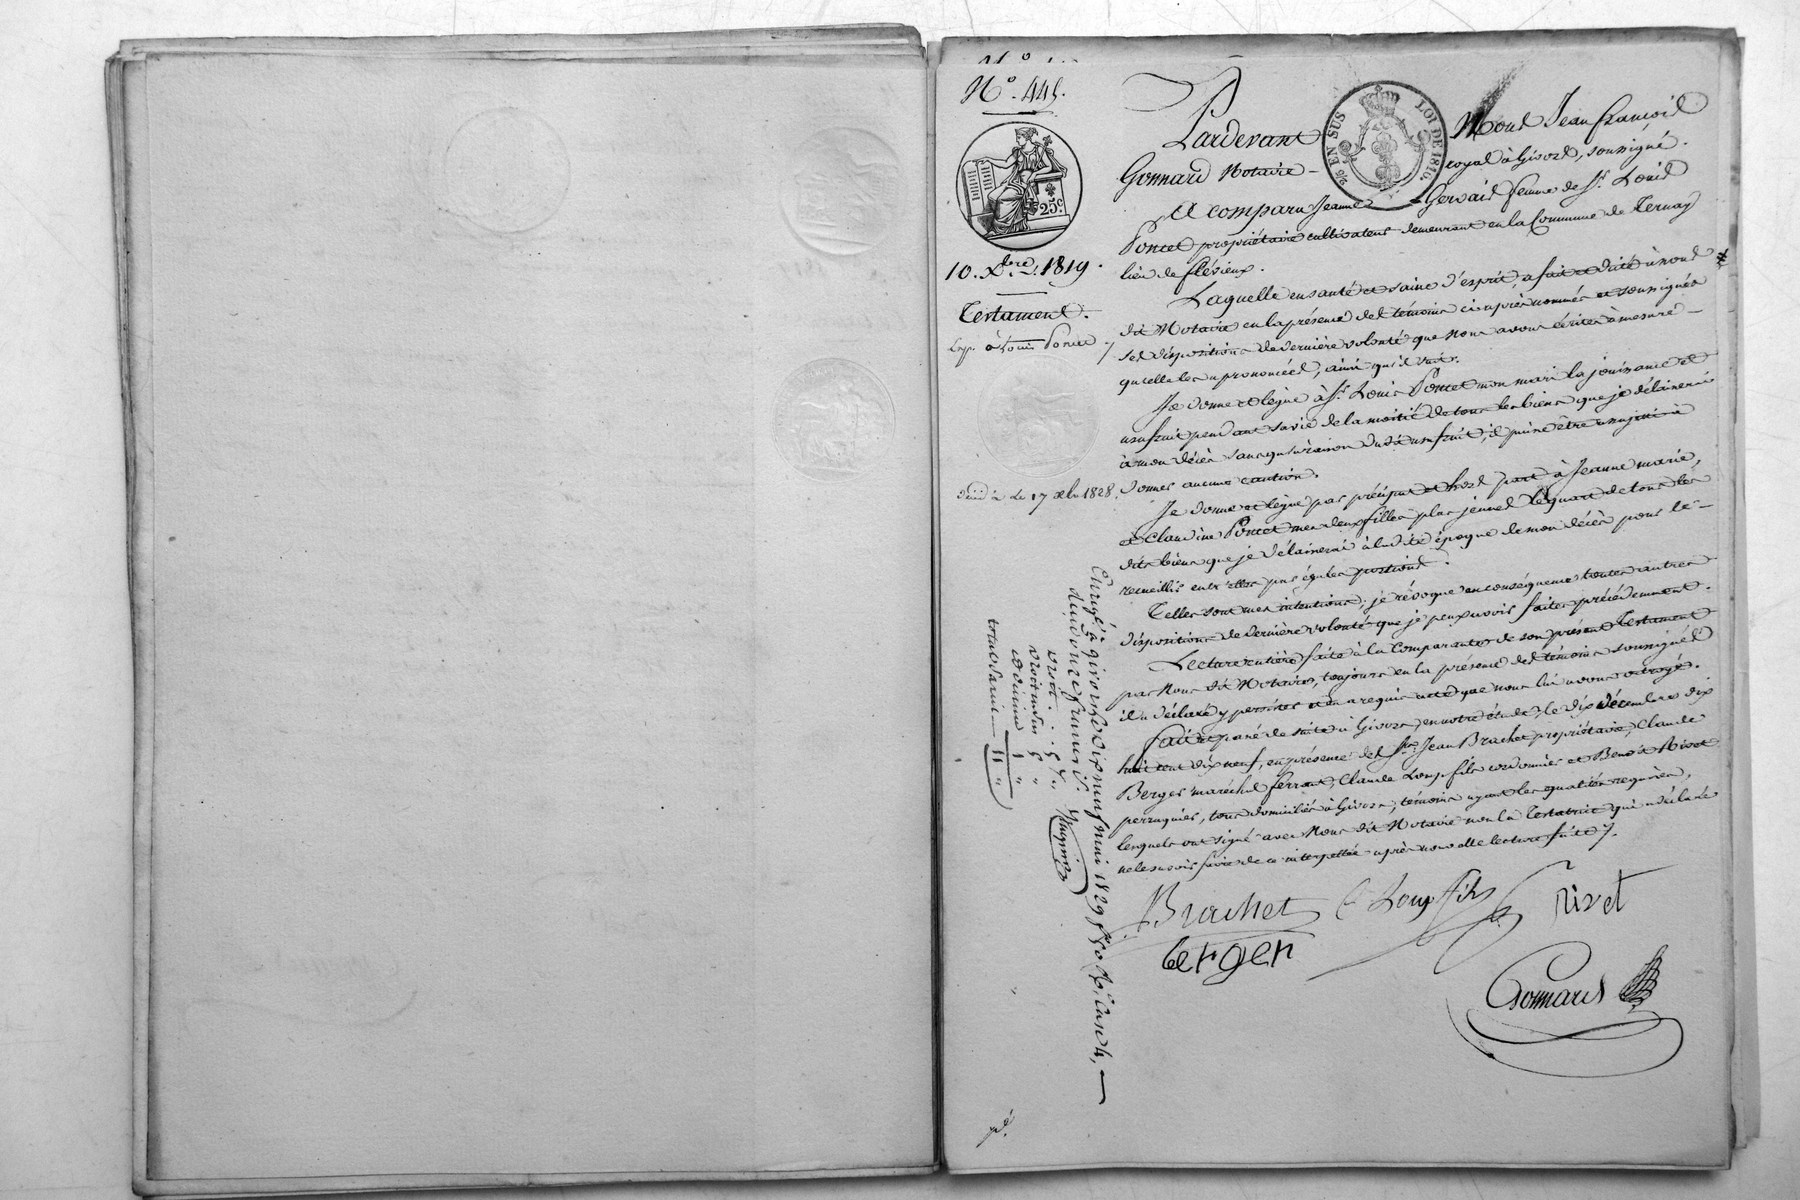 N.° 445.
25.c
10. Xbre. 1819.
Testament.
Exp. à Louis Poncet
Décédée le 17 xbre 1828.
25 EN SUS LOI DE 1816.
Pardevant Nous Jean François
Gonnard Notaire royal à Givors, soussigné.
A comparu Jeanne Gervais femme de Sr. Louis
Poncet propriétaire cultivateur demeurant en la Commune de Ternay
lieu de flévieux.
Laquelle en santé et saine d'esprit, a fait et dicté à nous
dit Notaire en la présence des témoins ci après nommés et soussignés
ses dispositions de dernière volonté que nous avons écrites à mesure
qu'elle les a prononcées, ainsi qu'il suit.
Je donne et lègue à Sr. Louis Poncet mon mari la jouissance et
usufruit pendant sa vie de la moitié de tous les biens que je délaisserai
à mon décès sans qu'à raison dudit usufruit, il puisse être assujetti à
donner aucune caution.
Je donne et lègue par préciput et hors part à Jeanne marie,
et Claudine Poncet mes deux filles plus jeunes le quart de tous les
dits biens que je délaisserai à ladite époque de mon décès pour le
recueillir entr'elles par égales portions.
Telles sont mes intentions; je révoque en conséquence toutes autres
dispositions de dernière volonté que je peux avoir faites précédemment.
Lecture entière faite à la Comparante de son présent Testament
par Nous dit Notaire, toujours en la présence des témoins soussignés
il a déclaré y persister et en a requis acte que nous lui avons octroyé.
Fait et passé de suite à Givors, en notre étude, le dix décembre dix
huit cent dix neuf, en présence des Srs. Jean Brachet propriétaire, Claude
Berger maréchal ferrant, Claude Loup fils cordonnier et Benoît Rivet
perruquier, tous domiciliés à Givors, témoins ayant les qualités requises,
lesquels ont signé avec Nous dit Notaire non la Testatrice qui a déclaré
ne le savoir faire de ce interpellée après nouvelle lecture faite.
Brachet C Loup fils Rivet
berger
Gonnard
Enregé. à givors le dix neuf mai 1829 fo. 50 Vo. Case 4,
Reçu onze francs